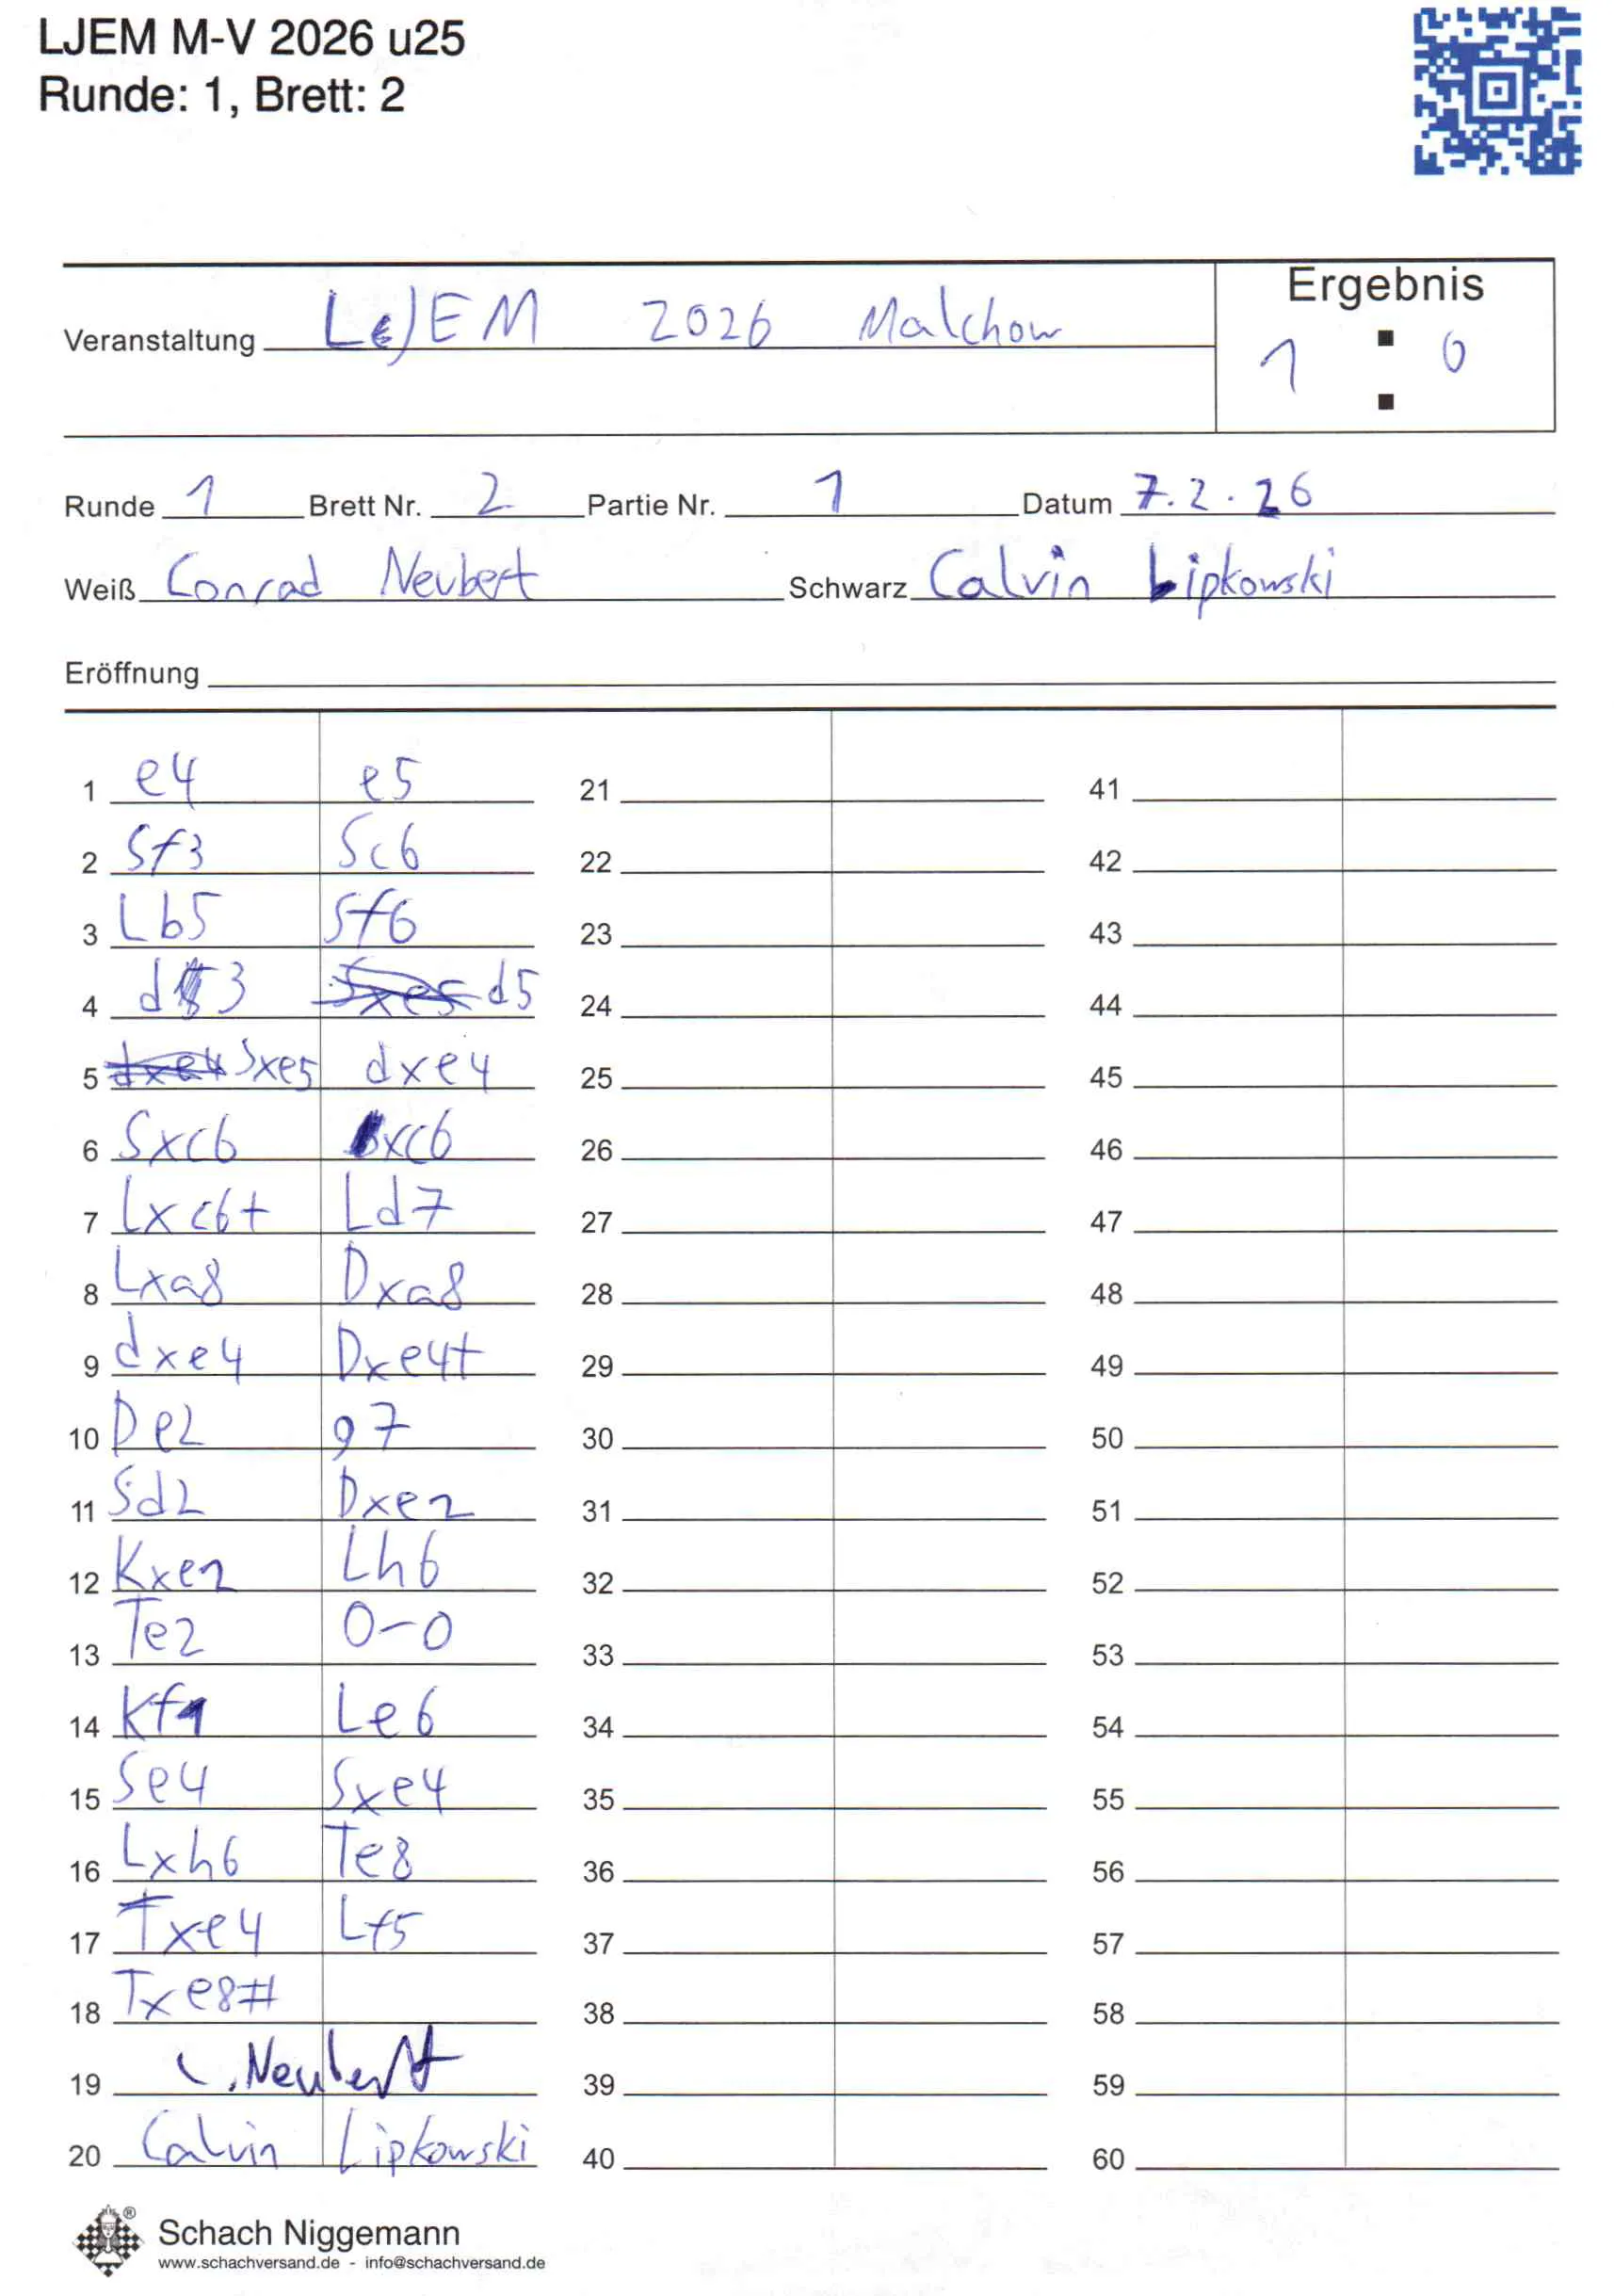 LJEM M-V 2026 u25
Runde: 1, Brett: 2
Ergebnis
Veranstaltung LJEM 2026 Malchow
1 : 0
Runde 1 Brett Nr. 2 Partie Nr. 1 Datum 7.2.26
Weiß Conrad Neubert Schwarz Calvin Lipkowski
Eröffnung
1 e4 e5 21 41
2 Sf3 Sc6 22 42
3 Lb5 Sf6 23 43
4 d3 Sxe5 d5 24 44
5 dxe4 Sxe5 dxe4 25 45
6 Sxc6 bxc6 26 46
7 Lxc6+ Ld7 27 47
8 Lxa8 Dxa8 28 48
9 dxe4 Dxe4+ 29 49
10 De2 g7 30 50
11 Sd2 Dxe2 31 51
12 Kxe2 Lh6 32 52
13 Te2 0-0 33 53
14 Kf1 Le6 34 54
15 Se4 Sxe4 35 55
16 Lxh6 Te8 36 56
17 Txe4 Lf5 37 57
18 Txe8# 38 58
19 C. Neubert 39 59
20 Calvin Lipkowski 40 60
®
Schach Niggemann
www.schachversand.de - info@schachversand.de